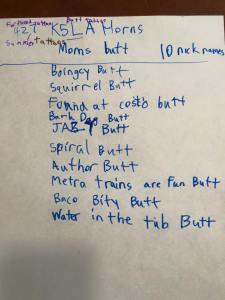 Forehead tattoo Butt tattoo
427 KSLA Morns
Summer tattoos
Moms butt 10 nick names
Boingey Butt
Squirrel Butt
Found at costo butt
Bark Dog Butt
JAB Butt
Spiral Butt
Author Butt
Metro trains are Fun Butt
Baco Bity Butt
Water in the tub Butt